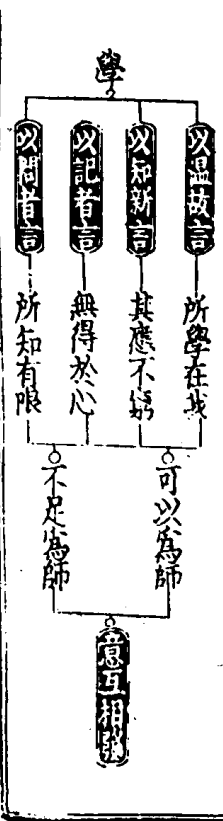 學
以温故言
以知新言
以記者言
以問者言
所學在我
其應不窮
無得於心
所知有限
可以為師
不足為師
意互相